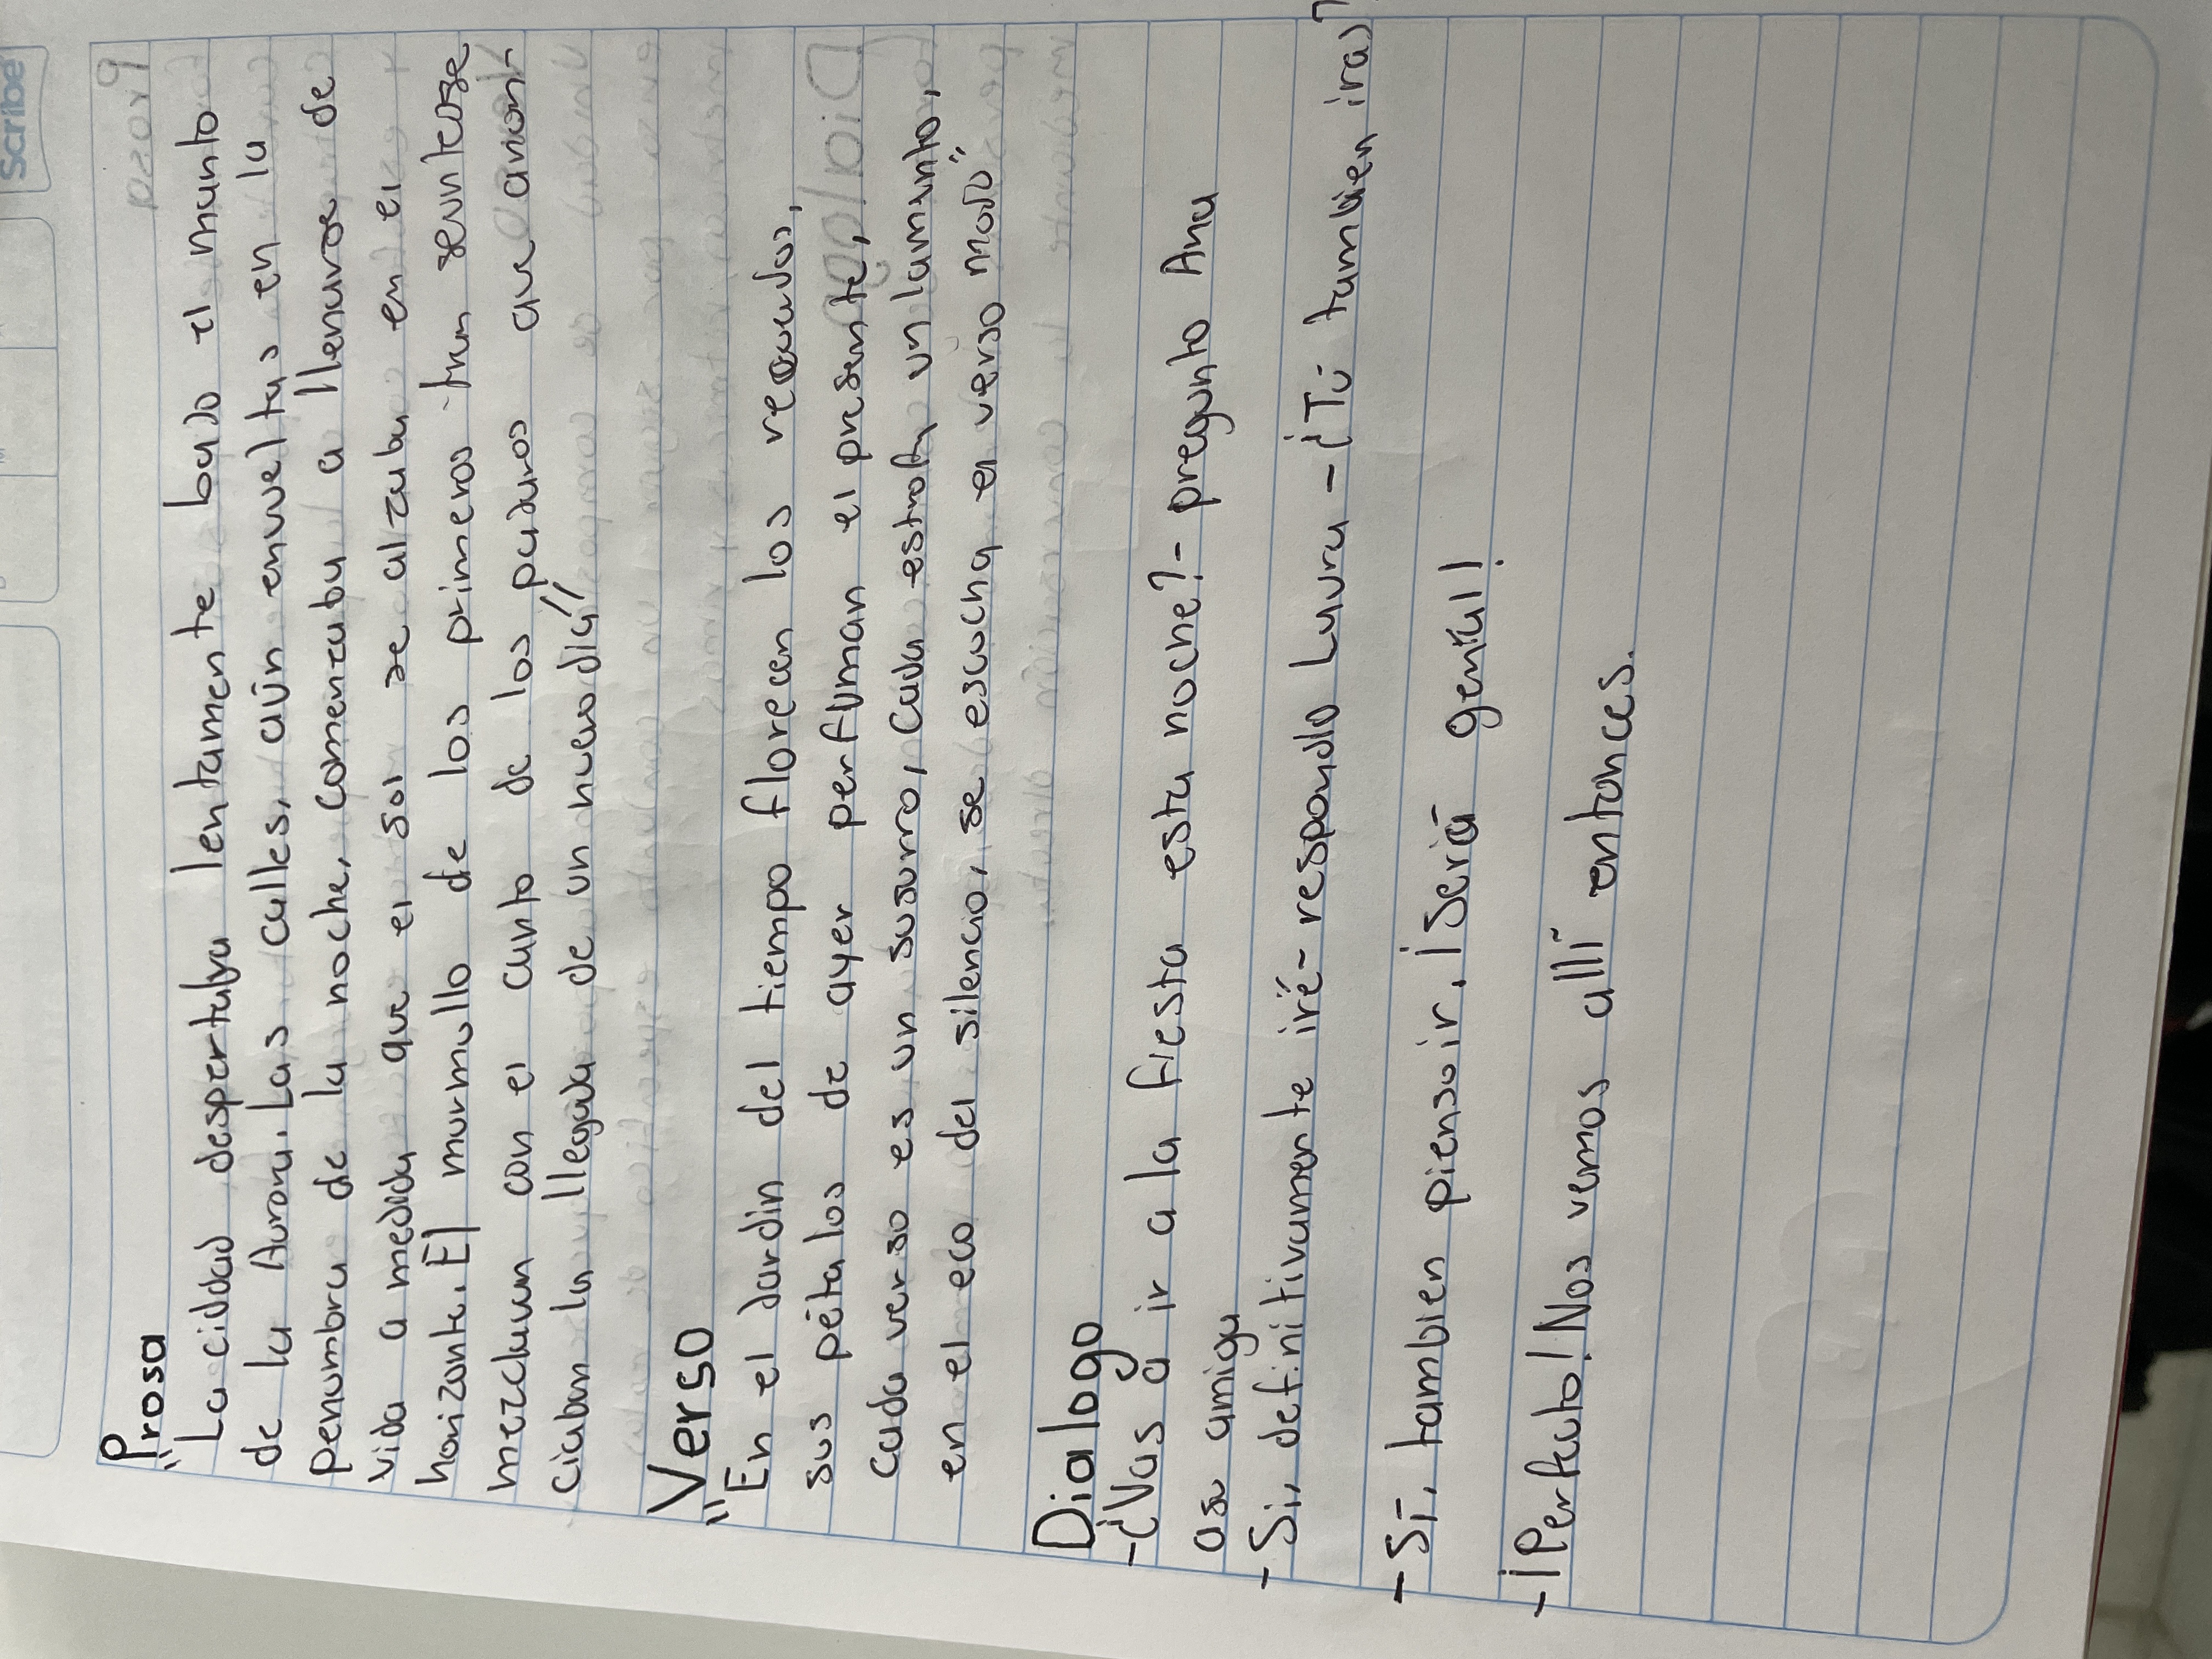 Scribe
Prosa
"La cidad despertaba lentamente bajo el manto
de la Aurora. Las calles, aún envueltas en la
penumbra de la noche, comenzaba a llenarse de
vida a medida que el sol se alzaba en el
horizonte. El murmullo de los primeros
mezclaban con el canto de los pajaros que anun-
ciaban la llegada de un nuevo día"
Verso
"En el Jardin del tiempo florecen los recuerdos,
sus pétalos de ayer perfuman el presente,
cada verso es un susurro, cada estrofa un lamento,
en el eco del silencio, se escucha el verso
Dialogo
-¿Vas a ir a la fiesta esta noche?- pregunto Ana
a su amiga
- Si, definitivamente iré- respondio Laura -¿Tú tambien iras?
- Sí, tambien pienso ir. ¡Será genial!
- ¡Perfecto! Nos vemos allí entonces.